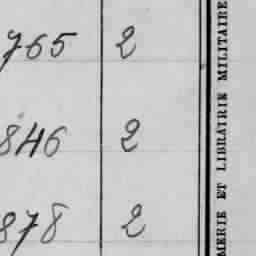 765 2
846 2
878 2
MERIE ET LIBRAIRIE MILITAIRE